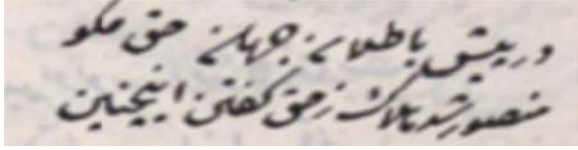 در پیش باطلان جهان حق مگو
منصور شد هلاک ز حق گفتن اینچنین